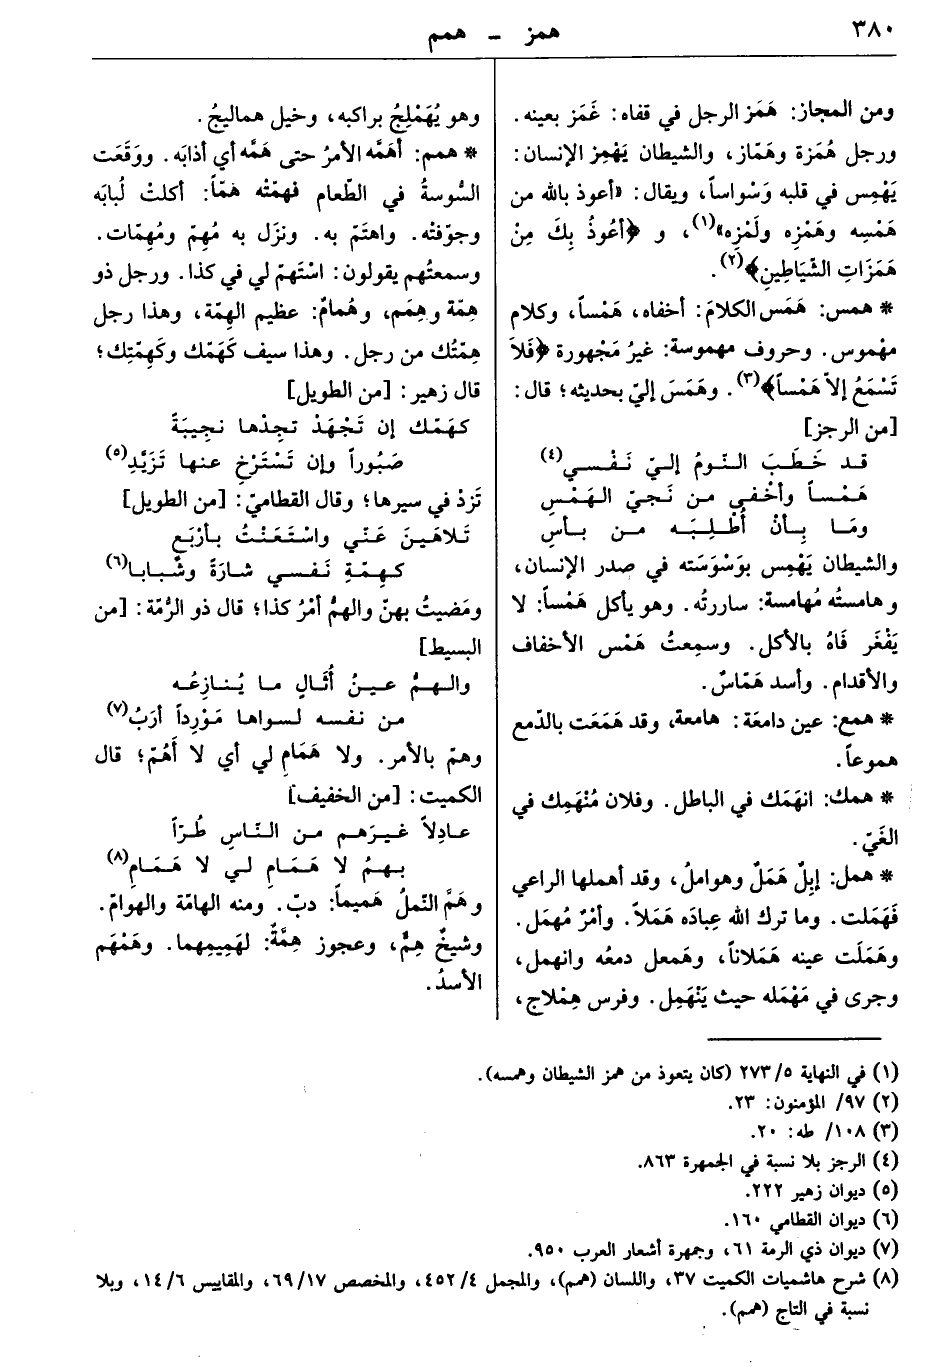 ٣٨٠
همز ـ همم
ومن المجاز: هَمَز الرجل في قفاه: غَمَز بعينه.
ورجل هُمَزة وهَمّاز، والشيطان يَهْمِز الإنسان:
يَهْمِس في قلبه وَسْواساً، ويقال: «أعوذ بالله من
هَمْسِه وهَمْزِه ولَمْزِه»(١)، و ﴿أعُوذُ بِكَ مِنْ
هَمَزَاتِ الشّيَاطِينِ﴾(٢).
* همس: هَمَس الكلامَ: أخفاه، هَمْساً، وكلام
مهْموس. وحروف مهموسة: غيرُ مَجْهورة ﴿فَلاَ
تَسْمَعُ إلاّ هَمْساً﴾(٣). وهَمَسَ إليّ بحديثه؛ قال:
[من الرجز]
قد خَطَبَ النّومُ إليّ نَفْسي(٤)
هَمْساً وأخْفى من نَجيّ الهَمْسِ
ومَا بِأنْ أُطْلِبَه من بأسِ
والشيطان يَهْمِس بوَسْوَسَته في صدر الإنسان،
وهامستُه مُهامسة: ساررتُه. وهو يأكل هَمْساً: لا
يَفْغَر فَاهُ بالأكل. وسمِعتُ هَمْس الأخفاف
والأقدام. وأسد هَمّاسٌ.
* همع: عين دامعَة: هامعة، وقد هَمَعَت بالدّمع
هموعاً.
* همك: انهَمَك في الباطل. وفلان مُنْهَمِك في
الغَيّ.
* همل: إبِلٌ هَمَلٌ وهواملُ، وقد أهملها الراعي
فَهَمَلت. وما ترك الله عِبادَه هَمَلاً. وأمْرٌ مُهمَل.
وهَمَلَت عينه هَمَلاناً، وهَمعل دمعُه وانهمل،
وجرى في مَهْمَله حيث يَنْهَمِل. وفرس هِمْلاج،
وهو يُهَمْلِجُ براكبه، وخيل هماليجُ.
* همم: أهَمَّه الأمرُ حتى هَمَّه أي أذابَه. ووَقَعَت
السُّوسةُ في الطّعام فهمّتْه همّاً: أكلتْ لُبابَه
وجوّفتْه. واهتَمّ به. ونزَل به مُهِمّ ومُهِمّات.
وسمعتُهم يقولون: اسْتَهِمّ لي في كذا. ورجل ذو
هِمّة وهِمَم، وهُمامٌ: عظيم الهِمّة، وهذا رجل
هِمّتُك من رجل. وهذا سيف كَهَمّك وكَهِمّتِك؛
قال زهير: [من الطويل]
كهَمّك إن تَجْهَدْ تجِدْها نجيبَةً
صَبُوراً وإن تَسْتَرْخِ عنها تَزَيَّدِ(٥)
تَزِدْ في سيرها؛ وقال القطاميّ: [من الطويل]
تلاهَينَ عَنّي واسْتَعَنْتُ بأرْبَعٍ
كهِمّةِ نَفسي شارَةً وشَبابا(٦)
ومَضيتُ بهنّ والهمُّ أمْرُ كذا؛ قال ذو الرُّمّة: [من
البسيط]
والهمُّ عينُ أُثَالٍ ما يُنازِعُه
من نفسه لسواها مَوْرِداً أرَبُ(٧)
وهمّ بالأمر. ولا هَمَامِ لي أي لا أَهُمّ؛ قال
الكميت: [من الخفيف]
عادِلاً غيرَهم من النّاسِ طُرّاً
بهمُ لا هَمَامِ لي لا هَمَامِ(٨)
وهَمَّ النّملُ هَميماً: دبّ. ومنه الهامّة والهوامّ.
وشيخٌ هِمٌّ، وعجوز هِمَّةٌ: لهَميمِهما. وهَمْهَم
الأسدُ.
(١) في النهاية ٢٧٣/٥ (كان يتعوذ من همز الشيطان وهمسه).
(٢) ٩٧/ المؤمنون: ٢٣.
(٣) ١٠٨/ طه: ٢٠.
(٤) الرجز بلا نسبة في الجمهرة ٨٦٣.
(٥) ديوان زهير ٢٢٢.
(٦) ديوان القطامي ١٦٠.
(٧) ديوان ذي الرمة ٦١، وجمهرة أشعار العرب ٩٥٠.
(٨) شرح هاشميات الكميت ٣٧، واللسان (همم)، والمجمل ٤٥٢/٤، والمخصص ٦٩/١٧، والمقاييس ١٤/٦، وبلا
نسبة في التاج (همم).